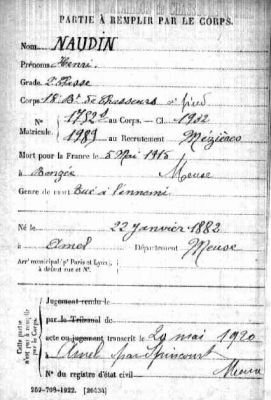 PARTIE À REMPLIR PAR LE CORPS.
Nom NAUDIN
Prénoms Henri.
Grade 2e Classe
Corps 18e Bon de Chasseurs à pied
N° 1752 au Corps. — Cl. 1902
Matricule. 1989 au Recrutement Mézières
Mort pour la France le 5 Mai 1915
à Meuse
Genre de mort Tué à l'ennemi
Né le 22 Janvier 1882
à Amel Département Meuse
Arr' municipal (p' Paris et Lyon),
à défaut rue et N°.
Cette partie
n'est pas à remplir
par le Corps.
Jugement rendu le
par le Tribunal de
acte ou jugement transcrit le 20 mai 1920
à Amel par Spincourt
Meuse
N° du registre d'état civil
259-708-1922. [26434]